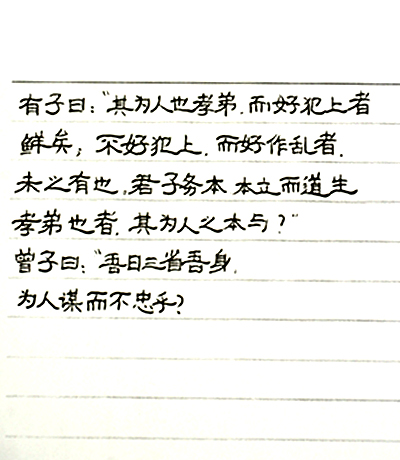 有子曰："其为人也孝弟.而好犯上者
鲜矣；不好犯上.而好作乱者.
未之有也.君子务本 本立而道生
孝弟也者.其为人之本与？"
曾子曰："吾日三省吾身.
为人谋而不忠乎？